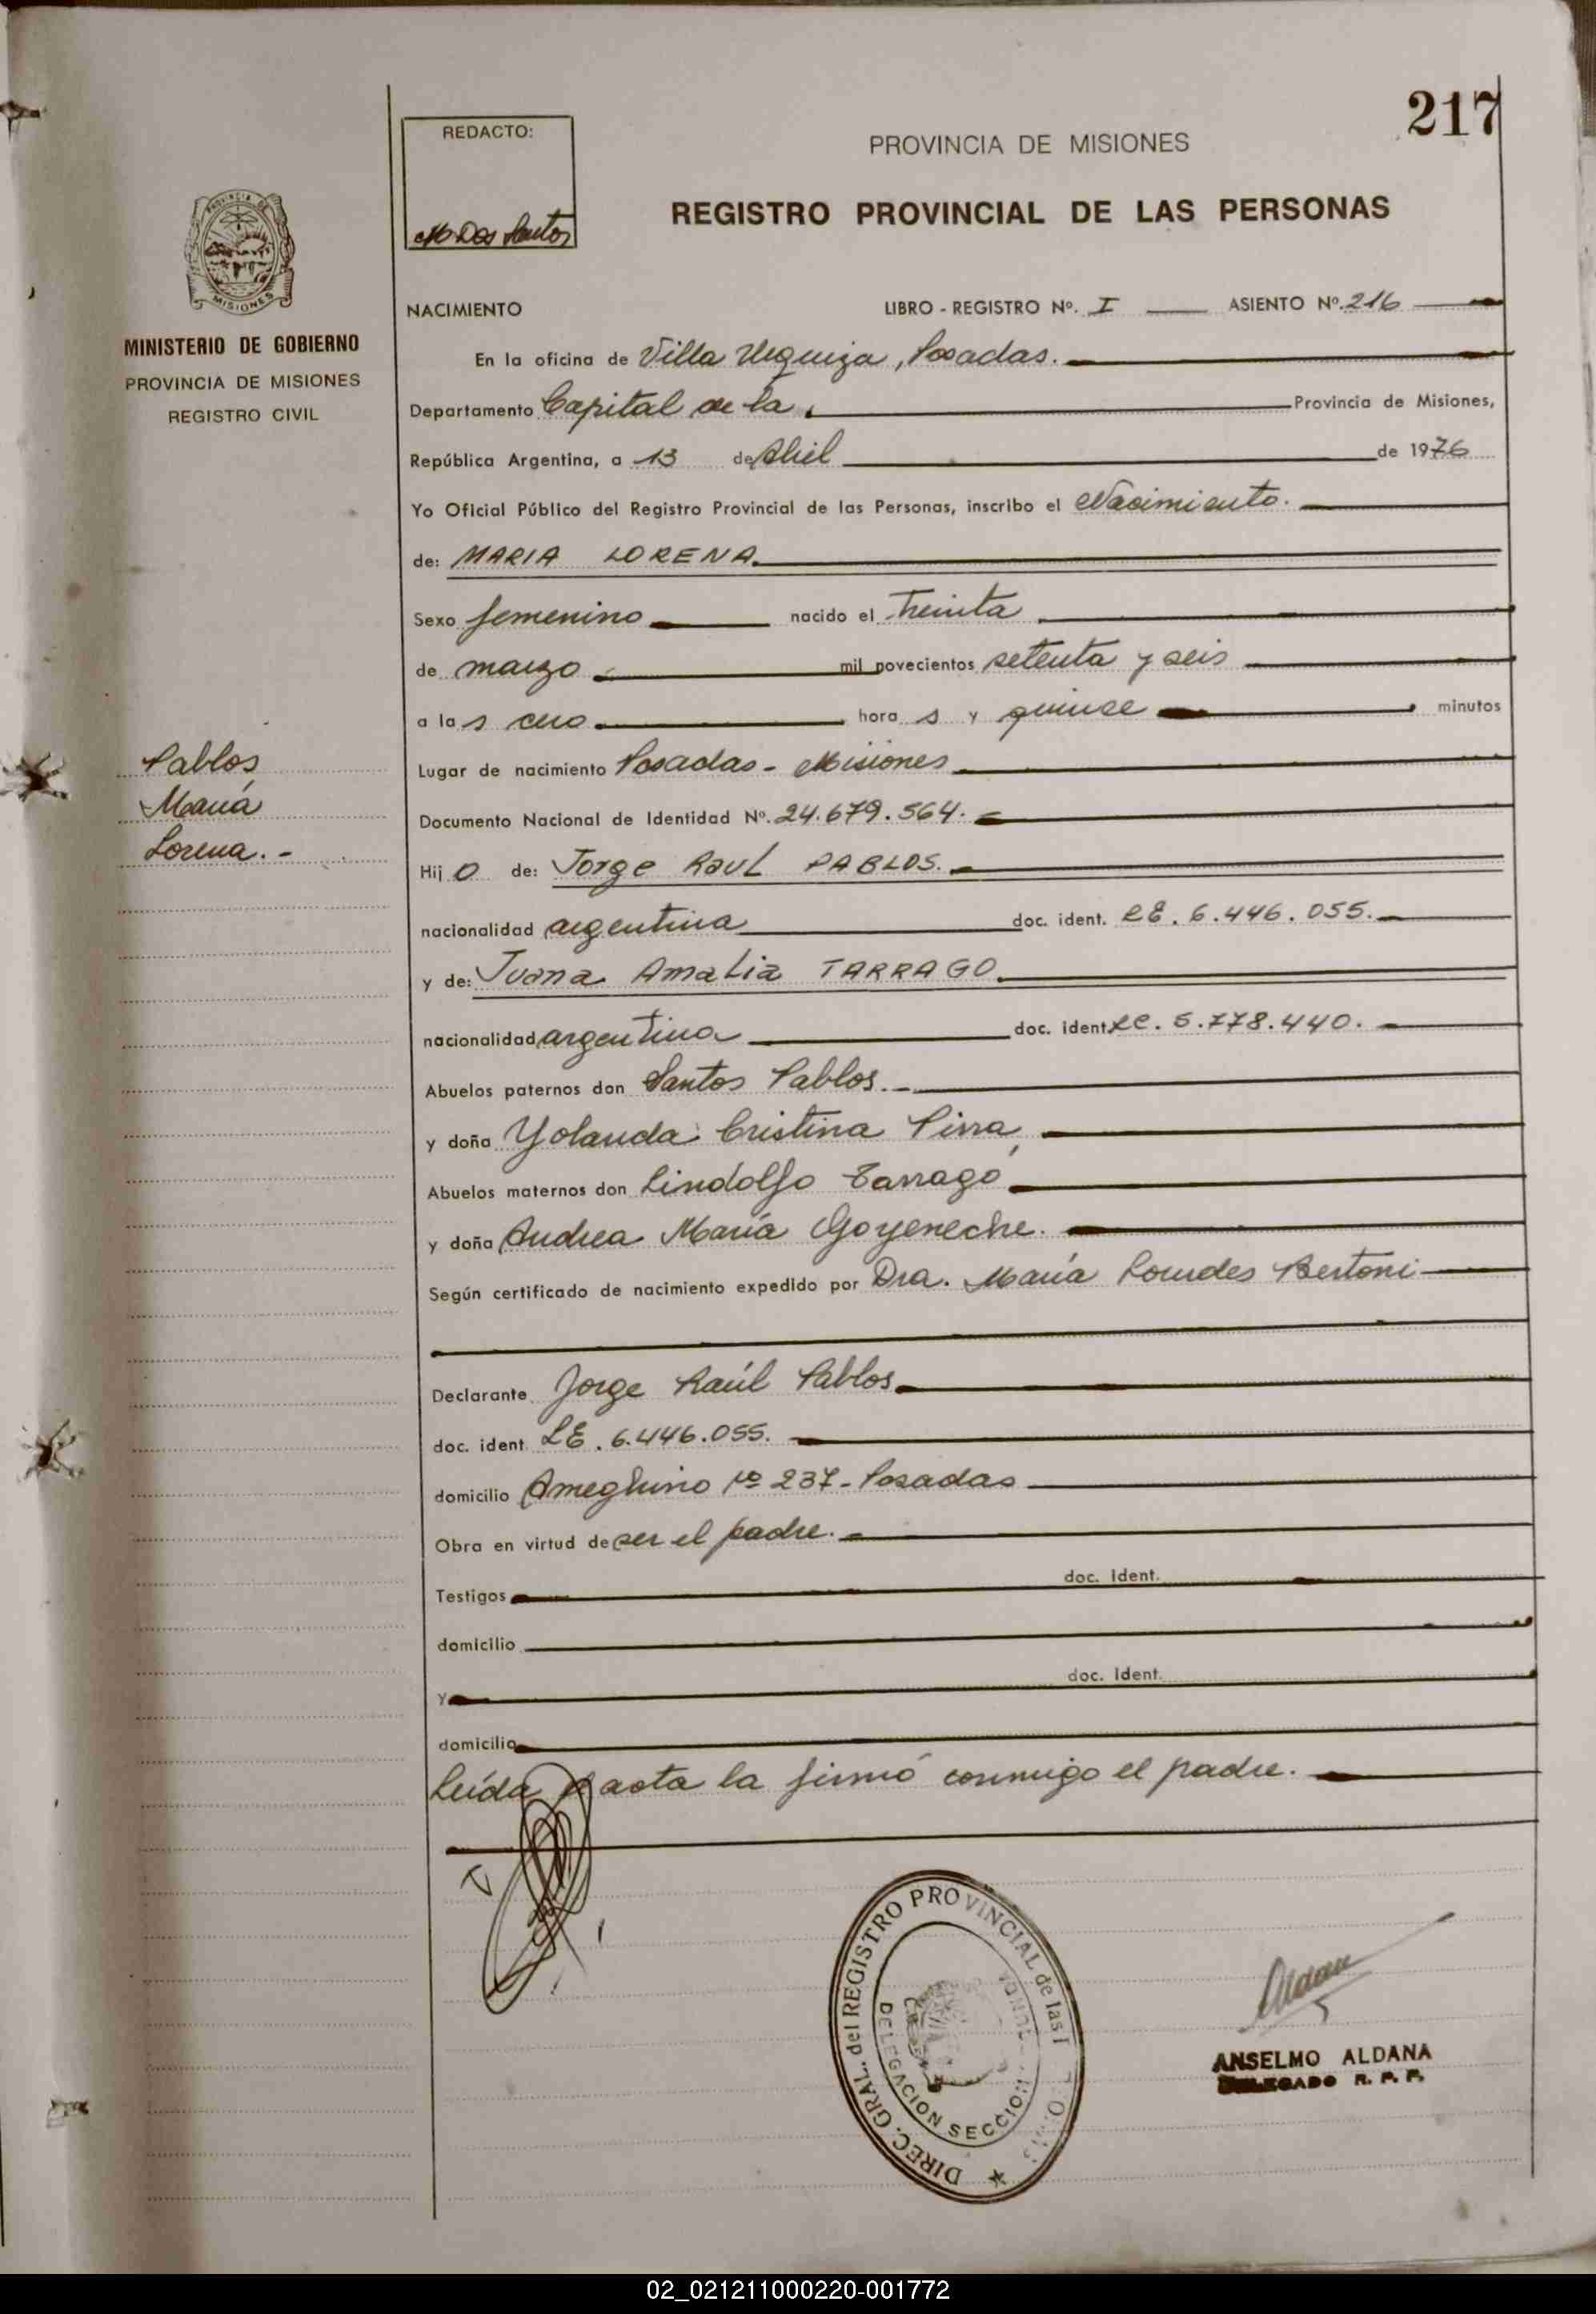 217
REDACTO:
M Dos Santos
PROVINCIA DE MISIONES
REGISTRO PROVINCIAL DE LAS PERSONAS
PROVINCIA DE
MISIONES
MINISTERIO DE GOBIERNO
PROVINCIA DE MISIONES
REGISTRO CIVIL
NACIMIENTO LIBRO - REGISTRO Nº. I ASIENTO Nº. 216
En la oficina de Villa Urquiza, Posadas.
Departamento Capital de la Provincia de Misiones,
República Argentina, a 13 de Abril de 1976
Yo Oficial Público del Registro Provincial de las Personas, inscribo el Nacimiento.
de: MARIA LORENA.
Sexo femenino nacido el Treinta
de marzo mil novecientos setenta y seis
a las cero horas y quince minutos
Pablos
María
Lorena.-
Lugar de nacimiento Posadas - Misiones
Documento Nacional de Identidad Nº. 24.679.564.
Hijo de: Jorge Raul PABLOS.
nacionalidad argentina doc. ident. LE. 6.446.055.
y de: Juana Amalia TARRAGO.
nacionalidad argentina doc. ident. LC. 5.778.440.
Abuelos paternos don Santos Pablos.
y doña Yolanda Cristina Pirra
Abuelos maternos don Lindolfo Tarragó
y doña Andrea María Goyeneche.
Según certificado de nacimiento expedido por Dra. María Lourdes Bertoni
Declarante Jorge Raúl Pablos
doc. ident. LE. 6.446.055.
domicilio Ameghino Nº 237 - Posadas
Obra en virtud de ser el padre.
Testigos doc. Ident.
domicilio
y doc. Ident.
domicilio
Leída acta la firmó conmigo el padre.
DIREC. GRAL. del REGISTRO PROVINCIAL de las
DELEGACION SECCION
Aldana
ANSELMO ALDANA
DELEGADO R. P. P.
02_021211000220-001772